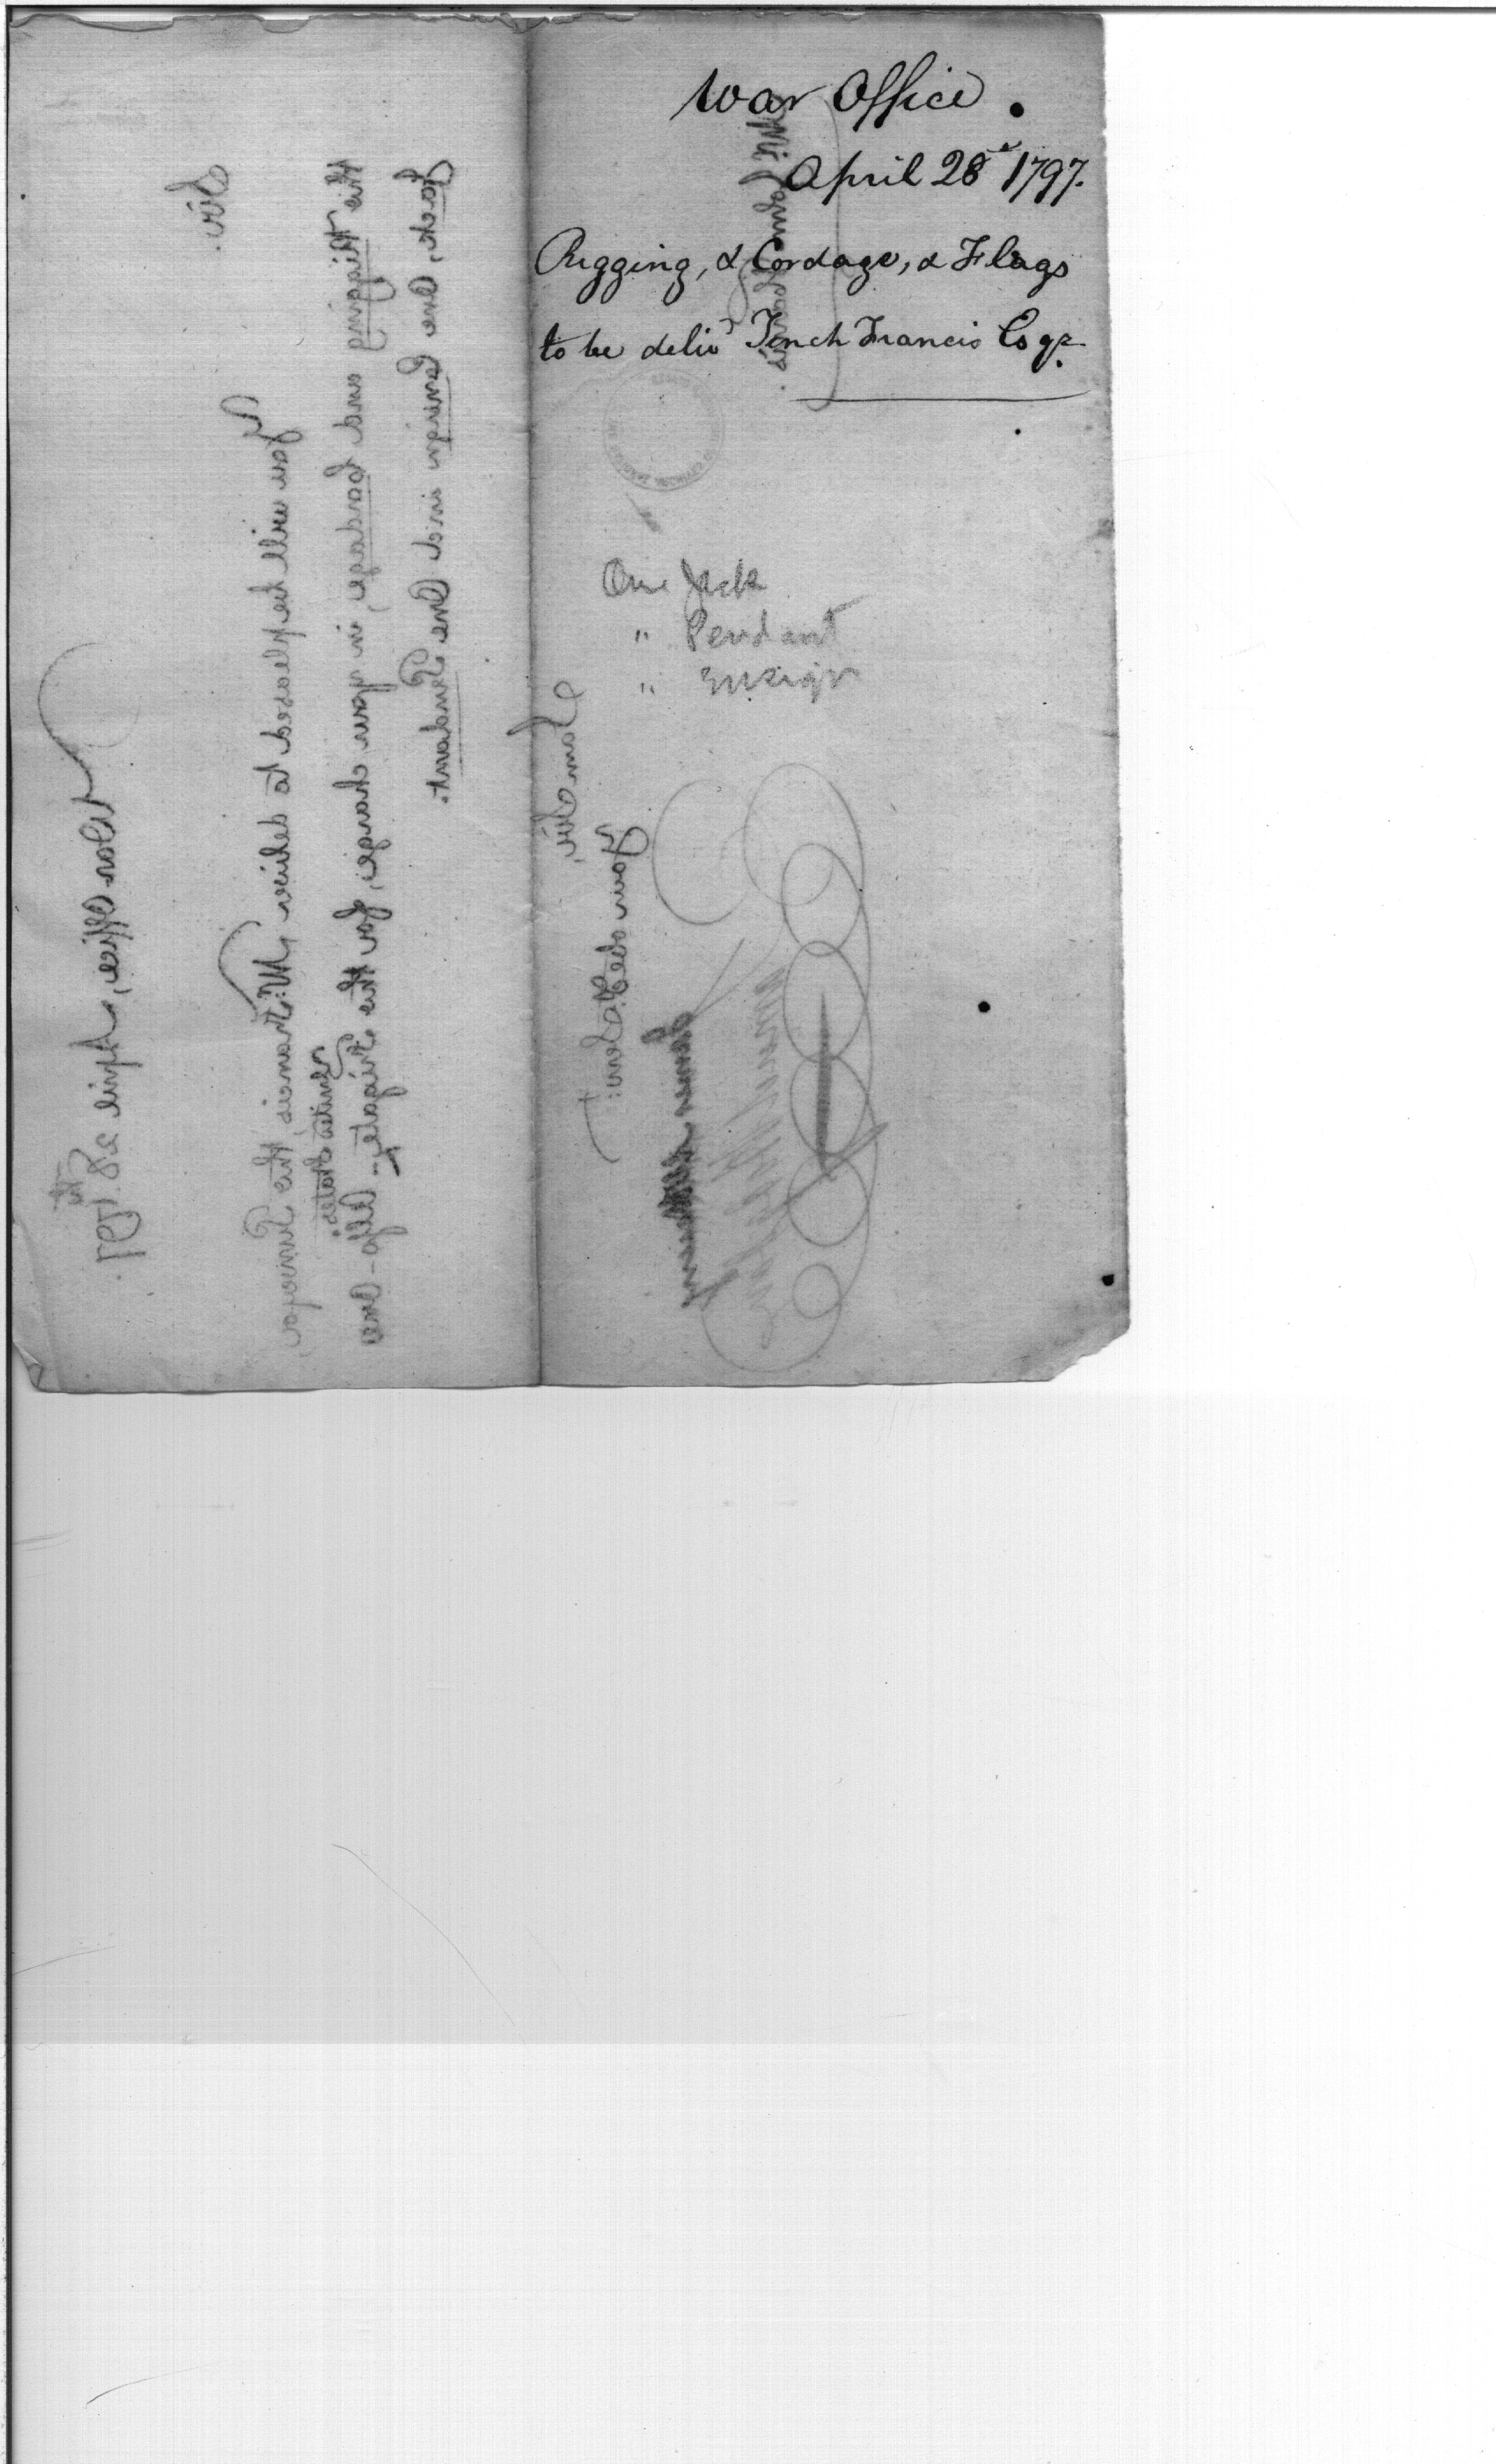 War Office.
April 28 1797.
Rigging, & Cordage, & Flags
to be deliv'd Tench Francis Esqr
One Jack
" Pendant
" Ensign
War Office, April 28th 1797.
Sir.
You will be pleased to deliver Mr. Francis, the Purveyor,
United States.
the Rigging and Cordage, in your charge, for the Frigate - Also - One
Jack, One Ensign and One Pendant.
I am Sir,
Your obed. Serv:t
James McHenry